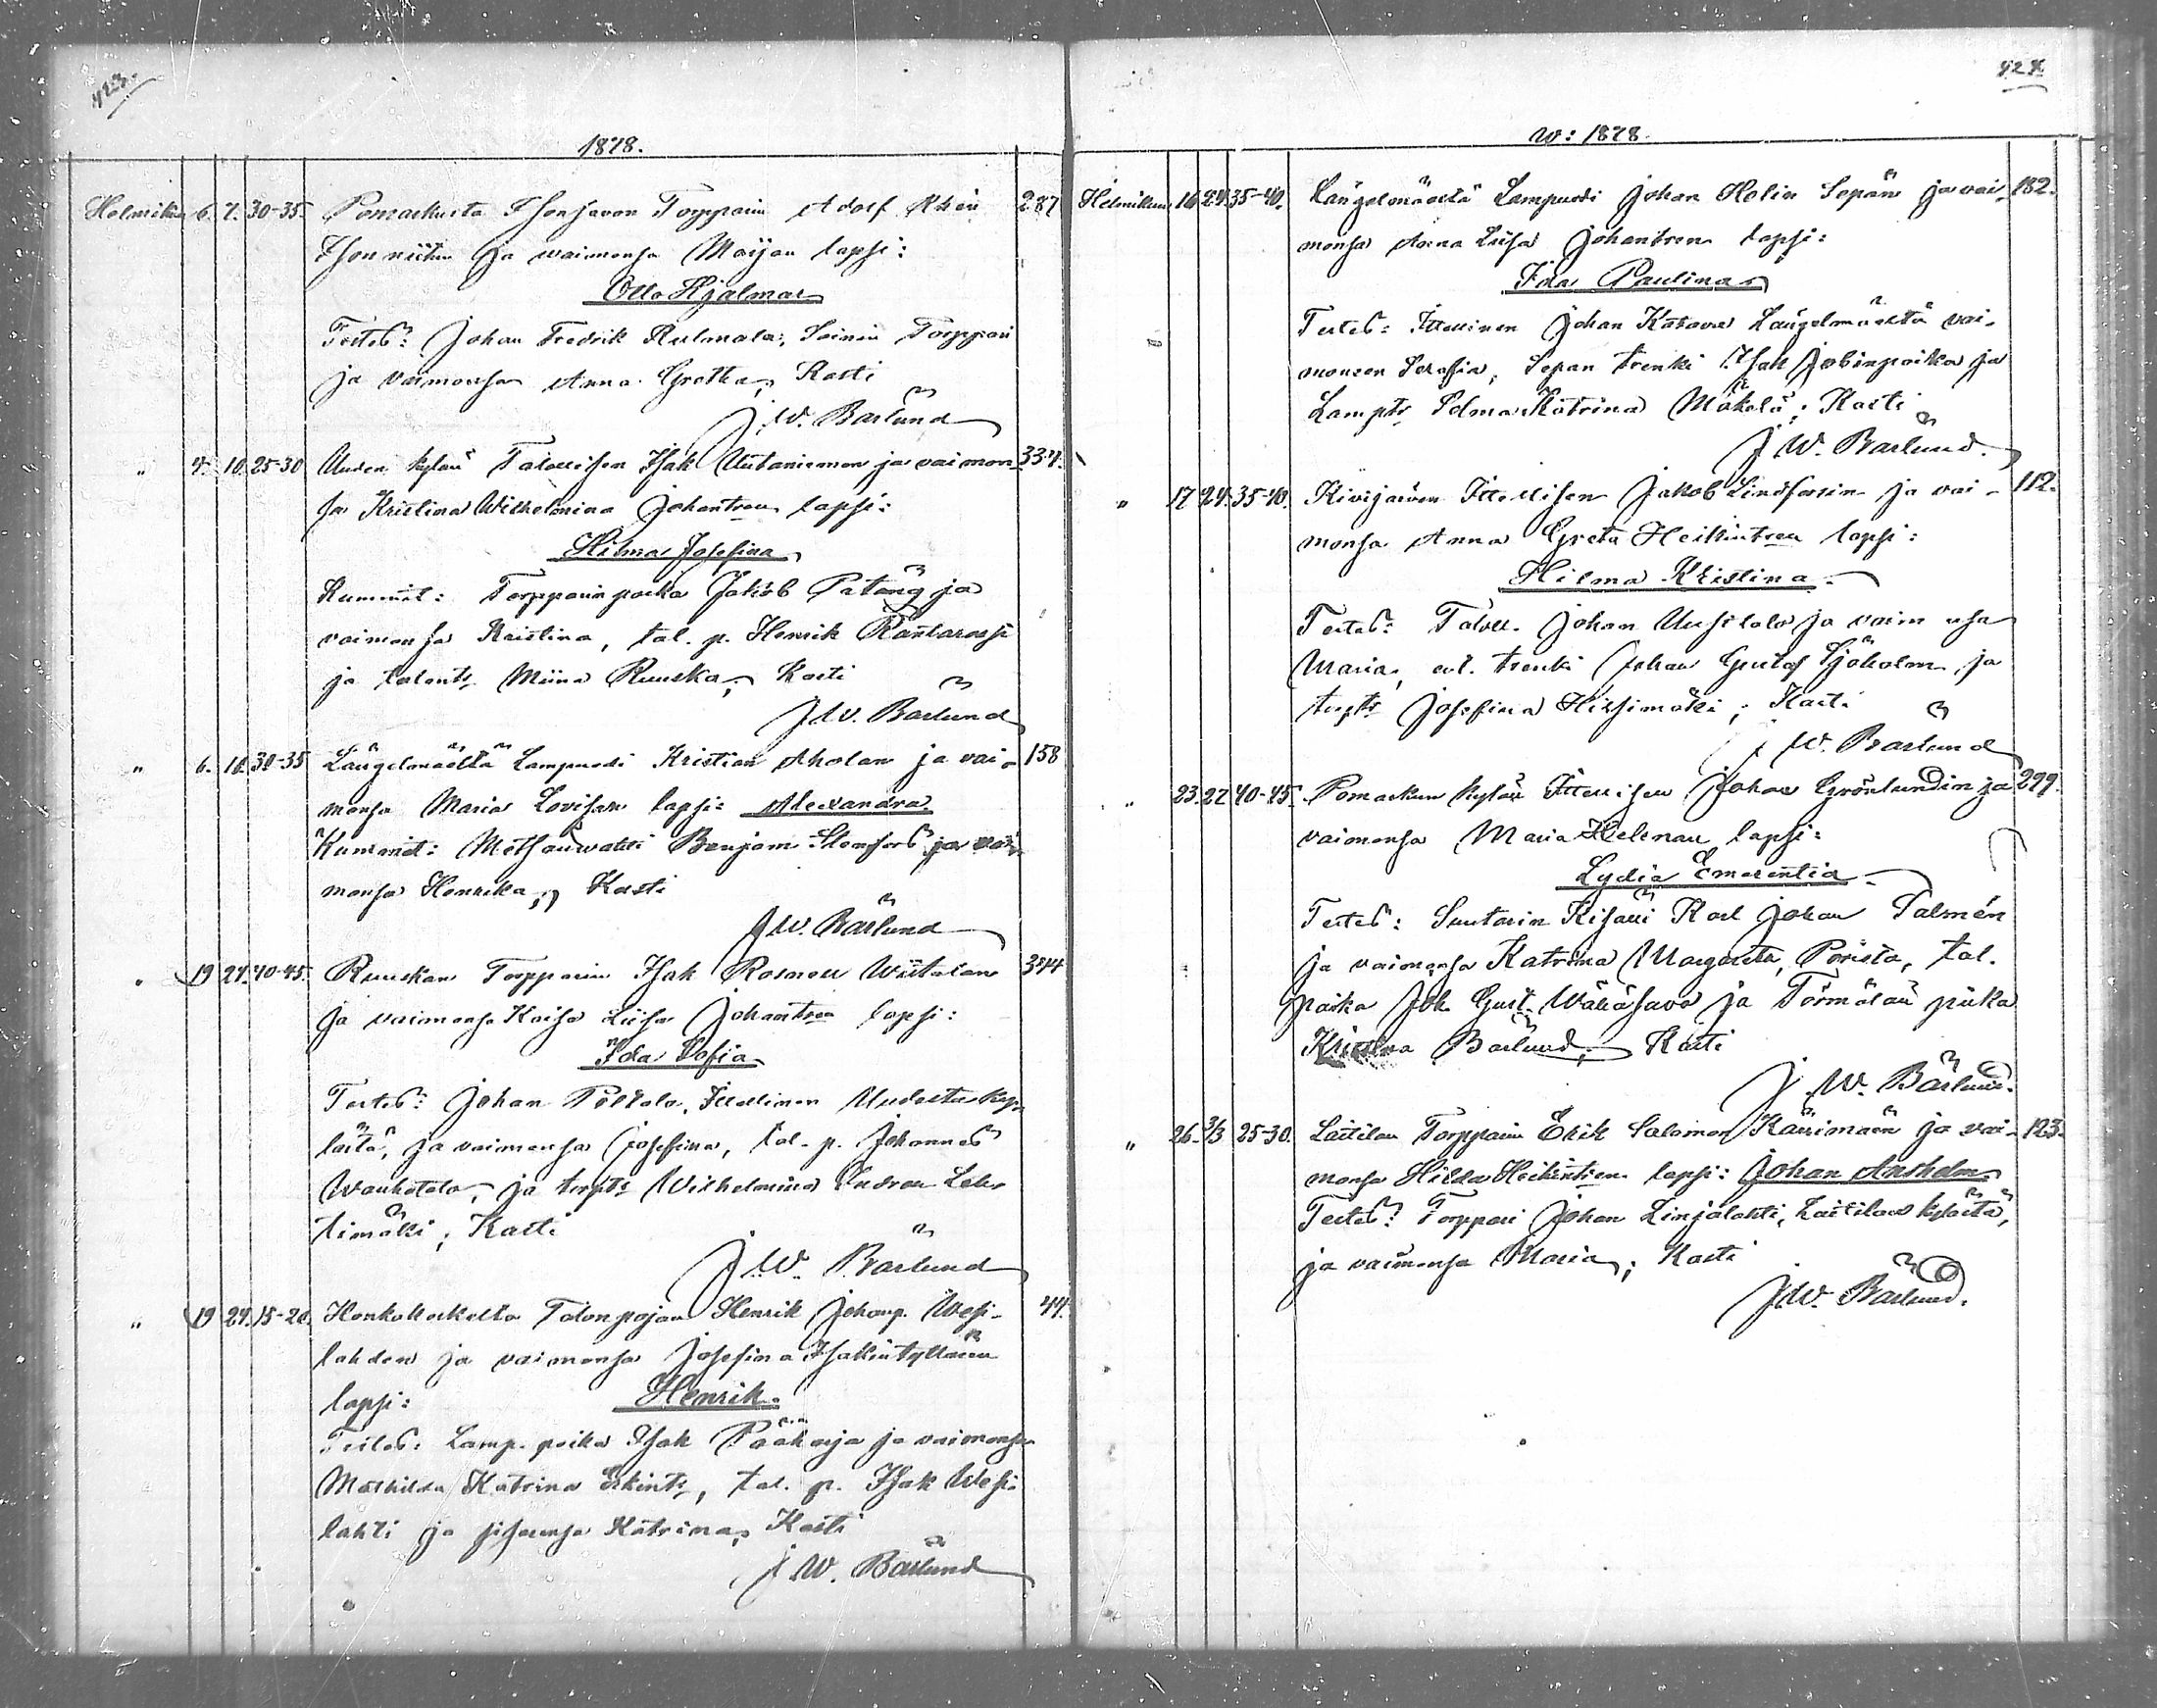 423.
1878.
Helmikun 6. 7. 30-35. Pomarkusta Isonsavon Torpparin Adolf 287
Isonniitun ja waimonsa Maijan lapsi:
Otto Hjalmar
Testes: Johan Fredrik Torppari
ja vaimonsa Anna Gretha; Kasti
J. W. Bärlund
" 4. 10. 25-30 Uuden kylän Talollisen Isak Uutaniemen ja vaimon 334.
sa Kristina Wilhelmina Johantren lapsi:
Hilma Josefina
Kummit: Torpparin poika Jakob Patäng ja
vaimonsa Kristina, tal. p. Henrik
ja talonts Miina Ruuska; Kasti
J. W. Bärlund
" 6. 10. 30-35 Längelmäeltä Lampuodi Kristian Aholan ja vai- 158
monsa Maria Lovisan lapsi: Alexandra
Kummit: Metsänwahti Benjam Stenfors ja vai-
monsa Henrika; Kasti
J. W. Bärlund
" 19 24. 40-45. Ruuskan Torpparin Isak Wiitalan 344
ja vaimonsa Kaisa Liisa Johantren lapsi:
Ida Sofia
Testes: Johan Itsellinen Uudesta ky-
lästä, ja vaimonsa Josefina, tal. p. Johannes
ja torpts Wilhelmina
timäki; Kasti
J. W. Bärlund
" 19 24. 15-20. Honkakoskelta Talonpojan Henrik Johanp. Wesi- 44.
lahden ja vaimonsa Josefina Isakintyttären
lapsi: Henrik.
Testes: Lamp. poika Isak Pääharja ja vaimonsa
Mathilda Katrina Erkints, tal. p. Isak Wesi-
lahti ja sisarensa Katrina; Kasti
J. W. Bärlund
424.
w: 1878.
Helmikun 16 24. 35-40. Längelmäeltä Lampuodi Johan Helin Sepän ja vai- 182.
monsa Anna Liisa Johantren lapsi:
Ida Paulina
Testes: Itsellinen Johan Katava Längelmäeltä vai-
moneen Serafia, Sepan trenki Isak Jobinpoika ja
Lampts Selma Katrina Mäkelä; Kasti
J. W. Bärlund.
" 17 24. 35-40. Kivijärven Itsellisen Jakob Lindforsin ja vai- 112.
monsa Anna Greta Heikintren lapsi:
Hilma Kristina
Testes: Taloll. Johan Uusitalo ja vaimonsa
Maria, trenki Johan Gustaf Sjöholm ja
torpts Josefina Hirsimäki; Kasti
J. W. Bärlund
" 23. 27. 40-45. Pomarkun kylän Itsellisen Johan Grönlundin ja 299.
vaimonsa Maria Helenan lapsi:
Lydia Emerentia
Testes: Suutarin Kisälli Karl Johan Salmén
ja vaimonsa Katrina Margareta, Porista, tal.
poika Joh. Gust. Wähäsavo ja Törmälän piika
Kristina Bärlund; Kasti
J. W. Bärlund.
" 26. 3/3 25-30. Laitilan Torpparin Erik Salomon ja vai- 123.
monsa Hilda Heikintren lapsi: Johan Anshelm
Testes: Torppari Johan Linjalahti, Laitilan kylästä,
ja vaimonsa Maria; Kasti
J. W. Bärlund.